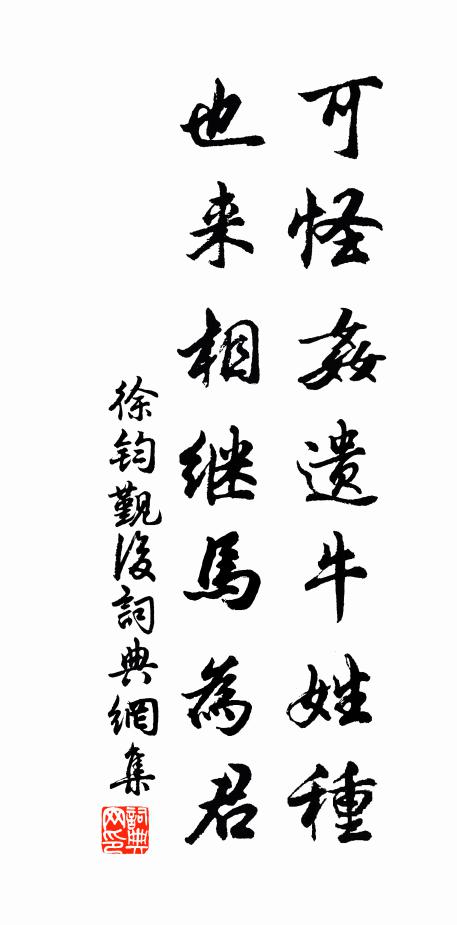 可怪姦遗牛姓種
也来相继馬為君
徐钧觐後詞典網集
詞典网印